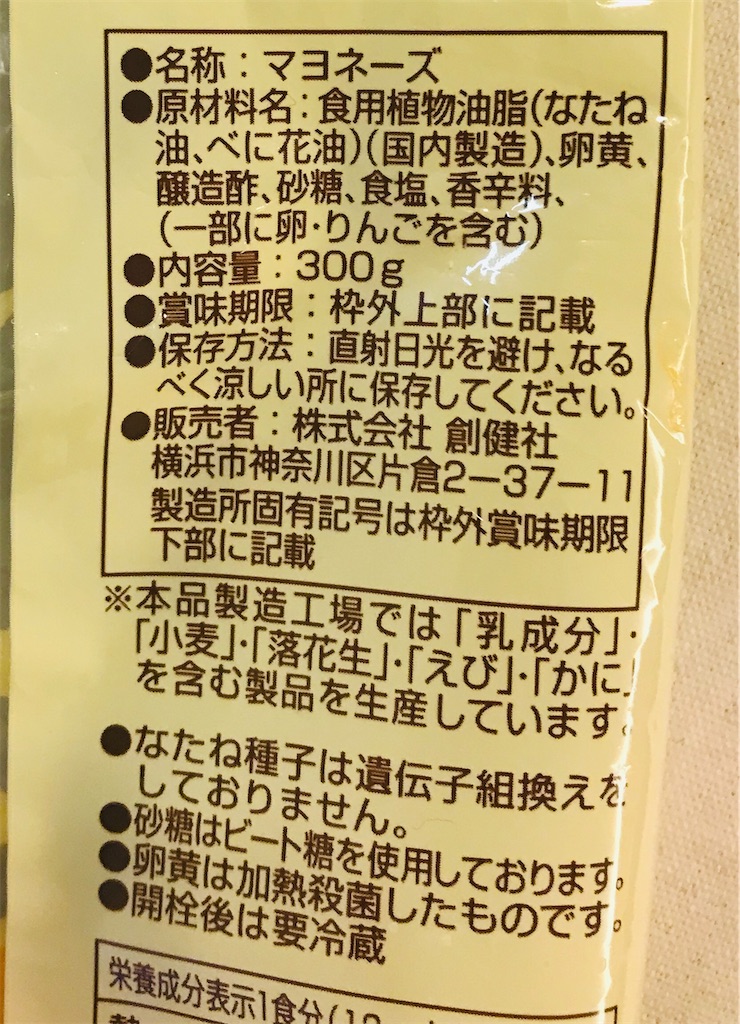 ●名称：マヨネーズ
●原材料名：食用植物油脂(なたね
油、べに花油)(国内製造)、卵黄、
醸造酢、砂糖、食塩、香辛料、
(一部に卵・りんごを含む)
●内容量：300g
●賞味期限：枠外上部に記載
●保存方法：直射日光を避け、なる
べく涼しい所に保存してください。
●販売者：株式会社 創健社
横浜市神奈川区片倉2ー37ー11
製造所固有記号は枠外賞味期限
下部に記載
※本品製造工場では「乳成分」・
「小麦」・「落花生」・「えび」・「かに」
を含む製品を生産しています。
●なたね種子は遺伝子組換えを
しておりません。
●砂糖はビート糖を使用しております。
●卵黄は加熱殺菌したものです。
●開栓後は要冷蔵
栄養成分表示1食分(